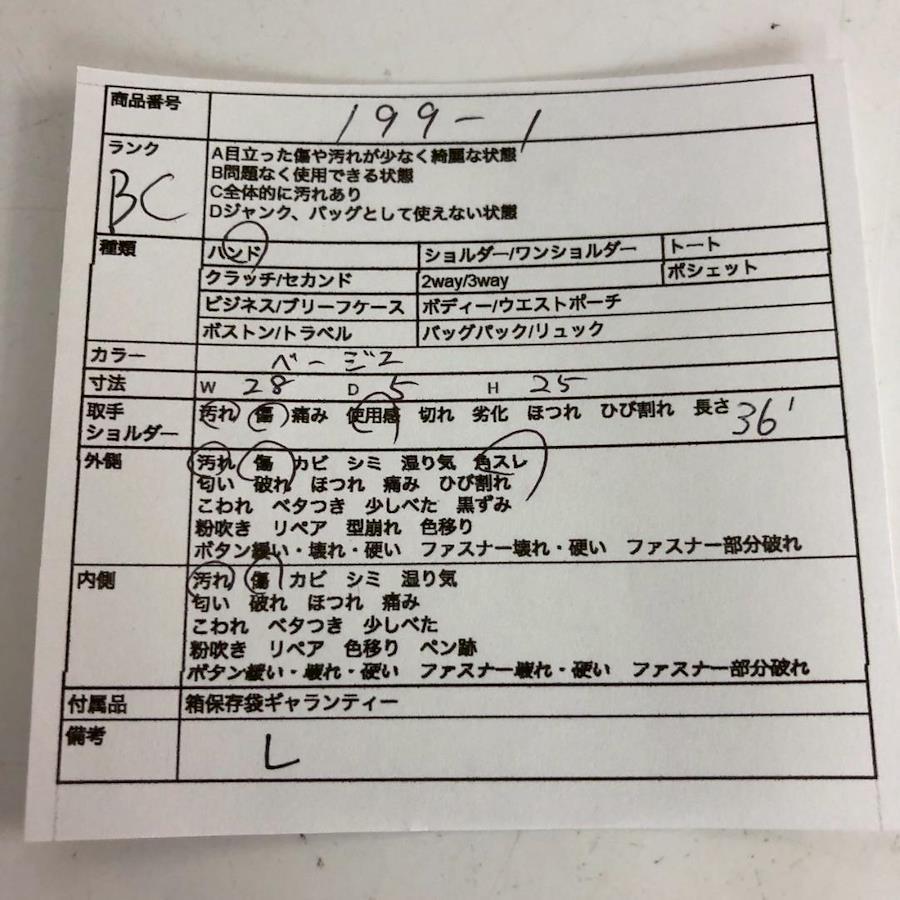 商品番号 199-1
ランク BC
A目立った傷や汚れが少なく綺麗な状態
B問題なく使用できる状態
C全体的に汚れあり
Dジャンク、バッグとして使えない状態
種類 ハンド ショルダー/ワンショルダー トート
クラッチ/セカンド 2way/3way ポシェット
ビジネス/ブリーフケース ボディー/ウエストポーチ
ボストン/トラベル バッグパック/リュック
カラー ベージュ
寸法 W 28 D 5 H 25
取手 汚れ 傷 痛み 使用感 切れ 劣化 ほつれ ひび割れ 長さ 36
ショルダー
外側 汚れ 傷 カビ シミ 湿り気 角スレ
匂い 破れ ほつれ 痛み ひび割れ
こわれ ベタつき 少しべた 黒ずみ
粉吹き リペア 型崩れ 色移り
ボタン緩い・壊れ・硬い ファスナー壊れ・硬い ファスナー部分破れ
内側 汚れ 傷 カビ シミ 湿り気
匂い 破れ ほつれ 痛み
こわれ ベタつき 少しべた
粉吹き リペア 色移り ペン跡
ボタン緩い・壊れ・硬い ファスナー壊れ・硬い ファスナー部分破れ
付属品 箱保存袋ギャランティー
備考 L